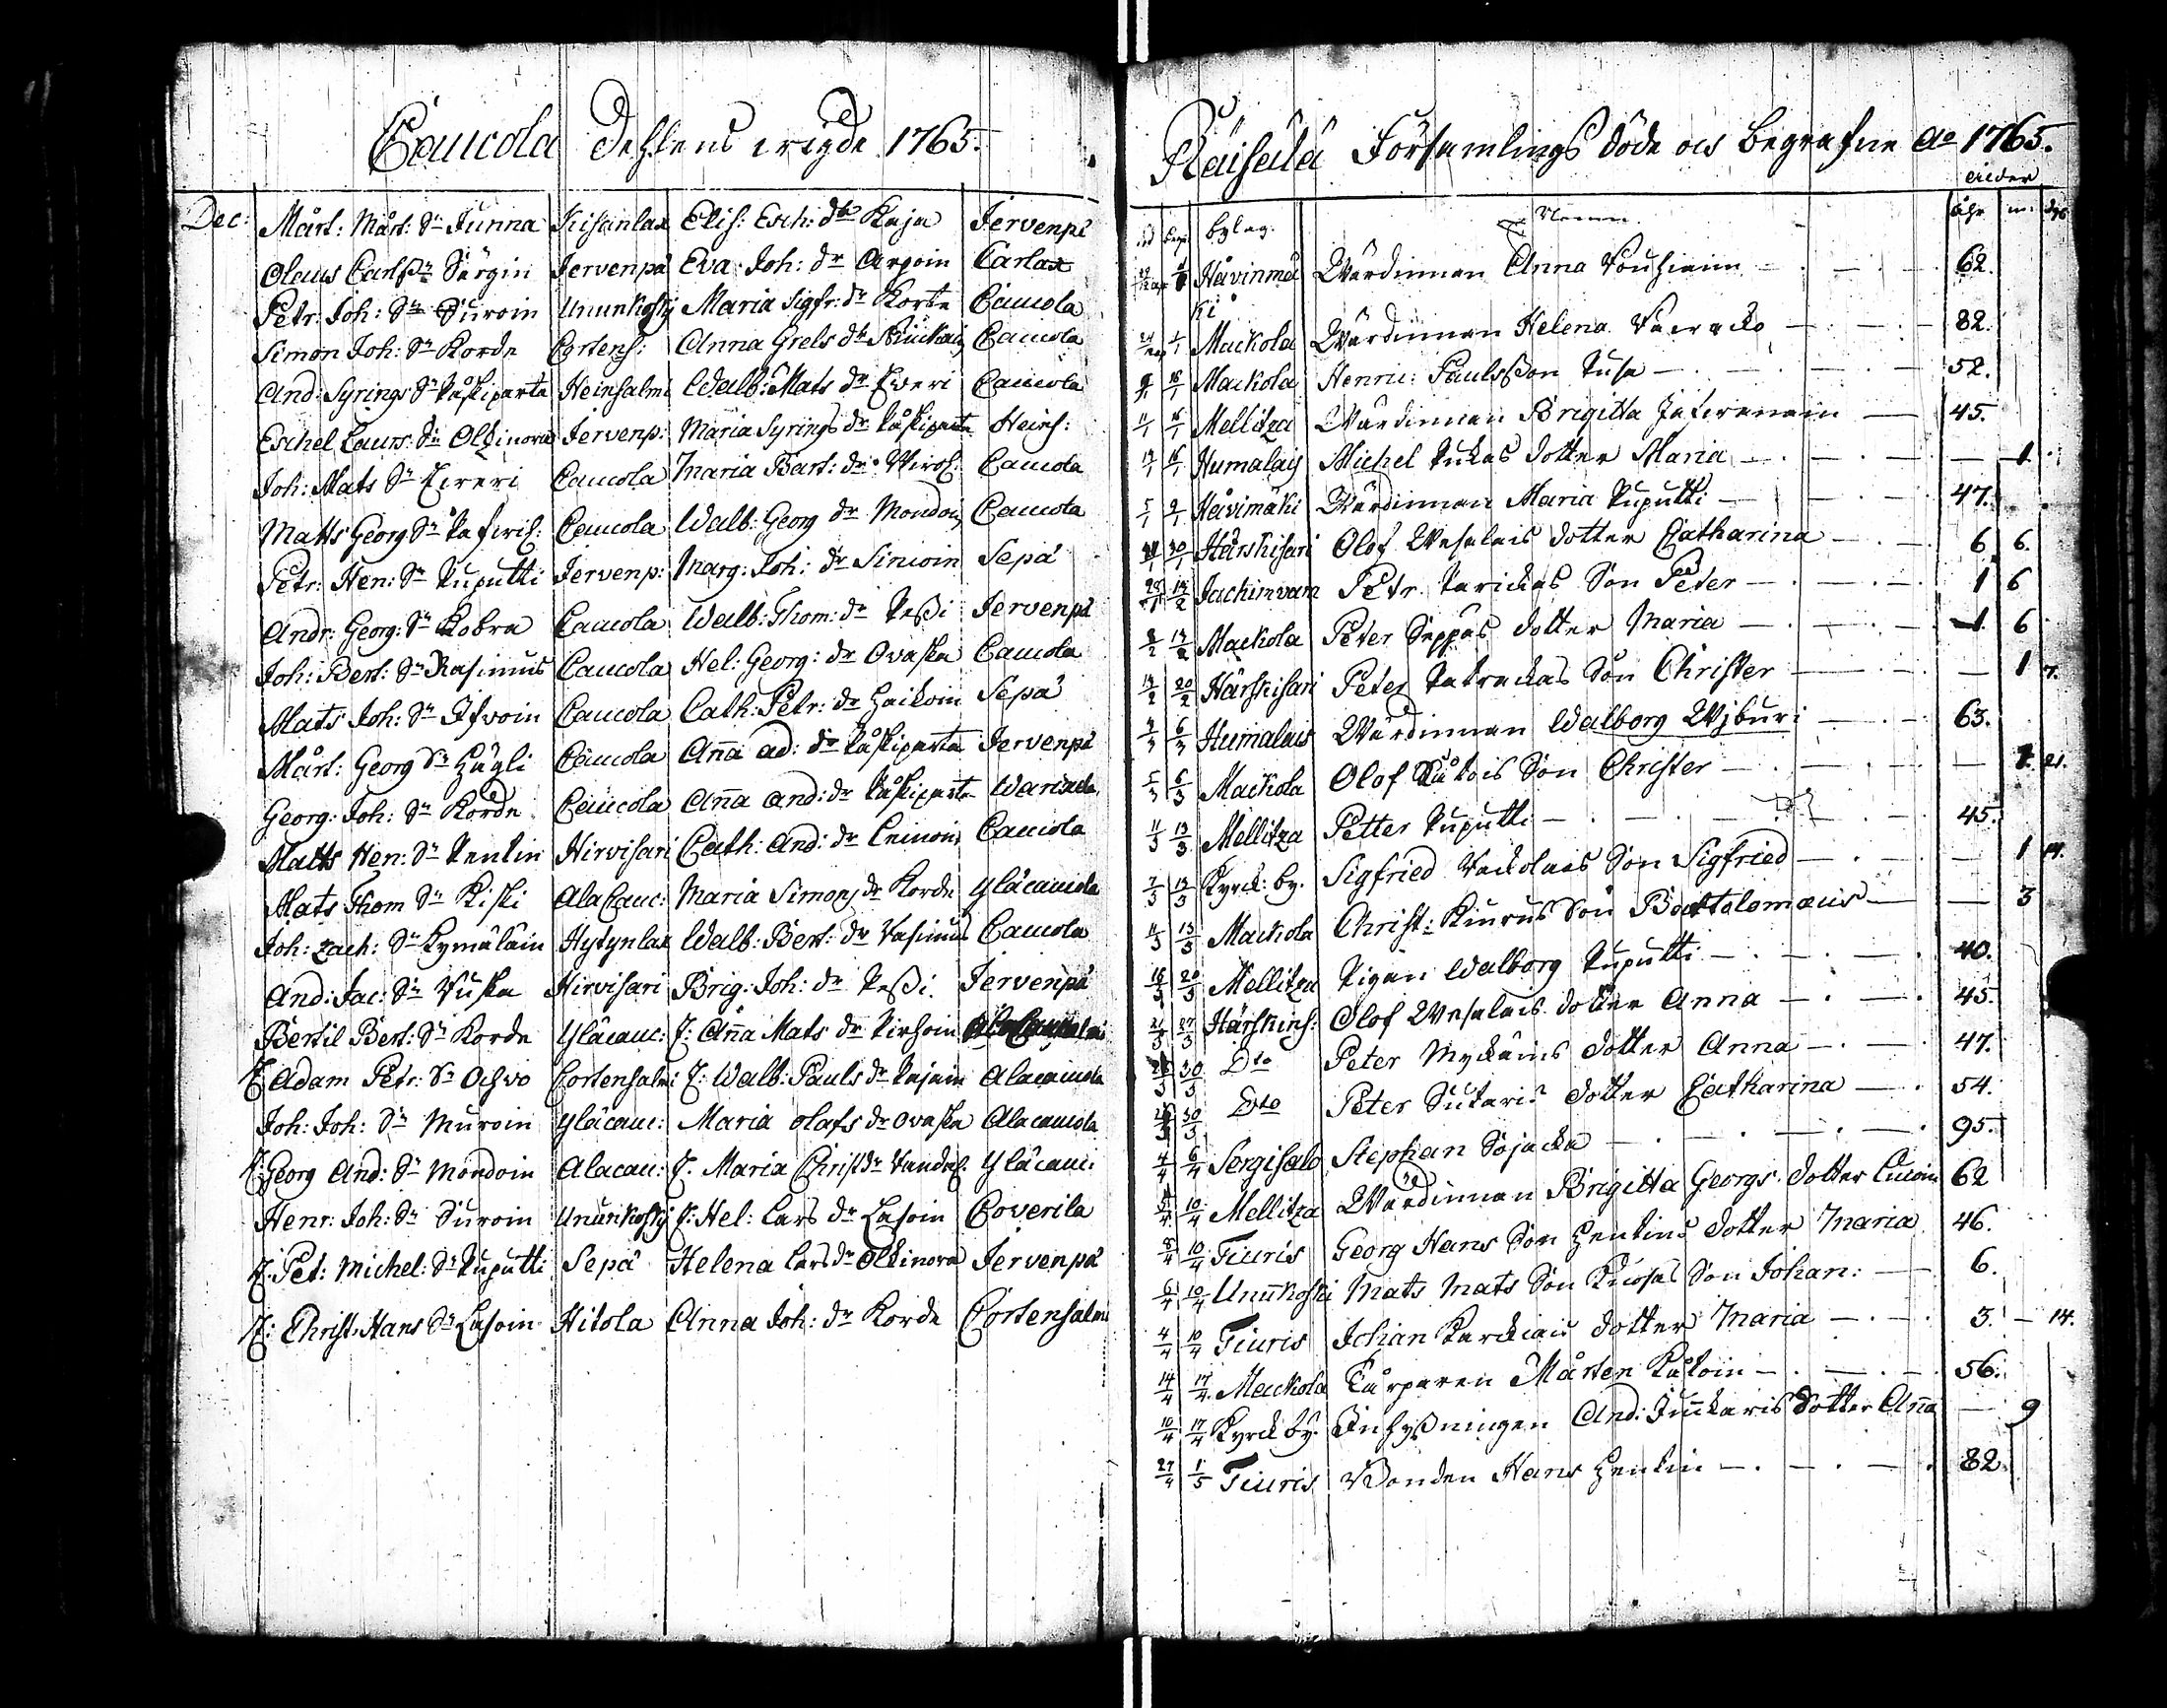 Caucola dehlens wigde 1765.
Dec: Mårt: Mårt: Sn Junna Kisanlax Elis: Esch: dtr Kaja Jervenpä
Olaus Carlss: Särgin Jervenpä Eva Joh: dr Arpoin Carlax
Petr: Joh: Sn Suroin Ununkoski Maria Sigfr: dr Korte Caucola
Simon Joh: Sn Korde Cortens: Anna Grels dtr Caucola
And: Syrings Sn Påskiparta Heinsalmi Walb: Mats dr Eweri Caucola
Eschel Laurs: Sn Olkinora Jervenp: Maria Syrings dr Påskiparta Heins:
Joh: Mats Sn Caucola Maria Bart: dr Caucola
Matts Georg Sn Caucola Walb: Georg dr Mondoin Caucola
Petr: Hen: Sn Puputti Jervenp: Marg: Joh: dr Simoin Sepä
Andr: Georg: Sn Kobra Caucola Walb: Thom: dr Peßi Jervenpä
Joh: Bert: Sn Rasimus Caucola Hel: Georg: dr Ovaska Caucola
Mats Joh: Sn Ifvoin Caucola Cath: Petr: dr Haikoin Sepä
Mårt: Georg Sn Hägli Caucola Aña ad: dr Påskiparta Jervenpä
Georg: Joh: Sn Korde Caucola Aña And: dr Påskiparta
Matts Hen: Sn Pentin Hirvisari Cath: And: dr Leinoin Caucola
Mats Thom Sn Kiski AlaCauc: Maria Simons dr Korde Yläcaucola
Joh: Zach: Sn Kymäläin Hytynlax Walb: Bert: dr Rasimus Caucola
And: Jac: Sn Vuska Hirvisari Brig: Joh: dr Peßi Jervenpä
Bertil Bert: Sn Korde Yläcauc: J: Aña Mats dr
J: Adam Petr: Sn Ochvo Cortensalmi J: Walb: Pauls dr Pajain Alacaucola
Joh: Joh: Sn Muroin Yläcauc: Maria Olafs dr Ovaska Alacaucola
J: Georg And: Sn Mondoin Alacau: J. Maria Christ dr Yläcauc:
Henr: Joh: Sn Suroin Ununkoski J: Hel: Lars dr Lasoin Coverila
J: Pet: Michel: Sn Puputti Sepä Helena Lars dr Olkinora Jervenpä
J: Christ: Hans Sn Lasoin Hitola Anna Joh: dr Korde Cortensalmi
Räisälä Församlings döde och Begrafne Ao 1765.
ålder
Död begr. bylag. Namn åhr m: dgr
Håvinmä Wärdinnan Anna Vouhiain 62.
ki
1/1 Mackola Wärdinnan Helena 82.
9/1 16/1 Mackola Henric Paulsson Pusa 52.
11/1 16/1 Mellitza Wärdinnan Brigitta 45.
14/1 16/1 Humalais Michel Pukas dotter Maria — 1.
5/1 9/1 Håvimäki Wärdinnan Maria Puputti 47.
30/1 Härskisari Olof Weseläis dotter Catharina 6. 6.
14/2 Jachimvara Petr Parickas Son Peter 1 6
8/2 14/2 Mackola Peter Seppäs dotter Maria 1. 6
14/2 20/2 Härskisari Peter Patrackas Son Christer — 1 7.
4/3 6/3 Humalais Wärdinnan Walborg Wiburi 63.
5/3 6/3 Mackola Olof Kåtois Son Christer — 1. 21.
11/3 13/3 Mellitza Petter Puputti 45.
7/3 13/3 Kyrck: by. Sigfried Vackolais Son Sigfried — 1 14.
11/3 13/3 Mackola Christ: Kiurus Son Bartolomæus — 3
18/3 20/3 Mellitza Pigan Walborg Puputti 40.
21/3 27/3 Härskins: Olof Weseläis dotter Anna 45.
30/3 Dto Peter Myckäins dotter Anna 47.
30/3 Dto Peter Sutaris dotter Catharina 54.
4/4 6/4 Sergisalo Stephan Sojacka 95.
10/4 Mellitza Wärdinnan Brigitta Georgs dotter 62
8/4 10/4 Tiuris Georg Hans Son Hentins dotter Maria 46.
6/4 10/4 Ununkoski Mats Mats Son Kuosas Son Johan: 6.
4/4 10/4 Tiuris Johan Karckiais dotter Maria 3. — 14.
14/4 17/4 Mackola Torparen Mårten Kåtoin 56.
10/4 17/4 Kyrck by: Inhyßningen And: Juckaris dotter Aña — 9
27/4 1/5 Tiuris Bonden Hans Hentin 82.